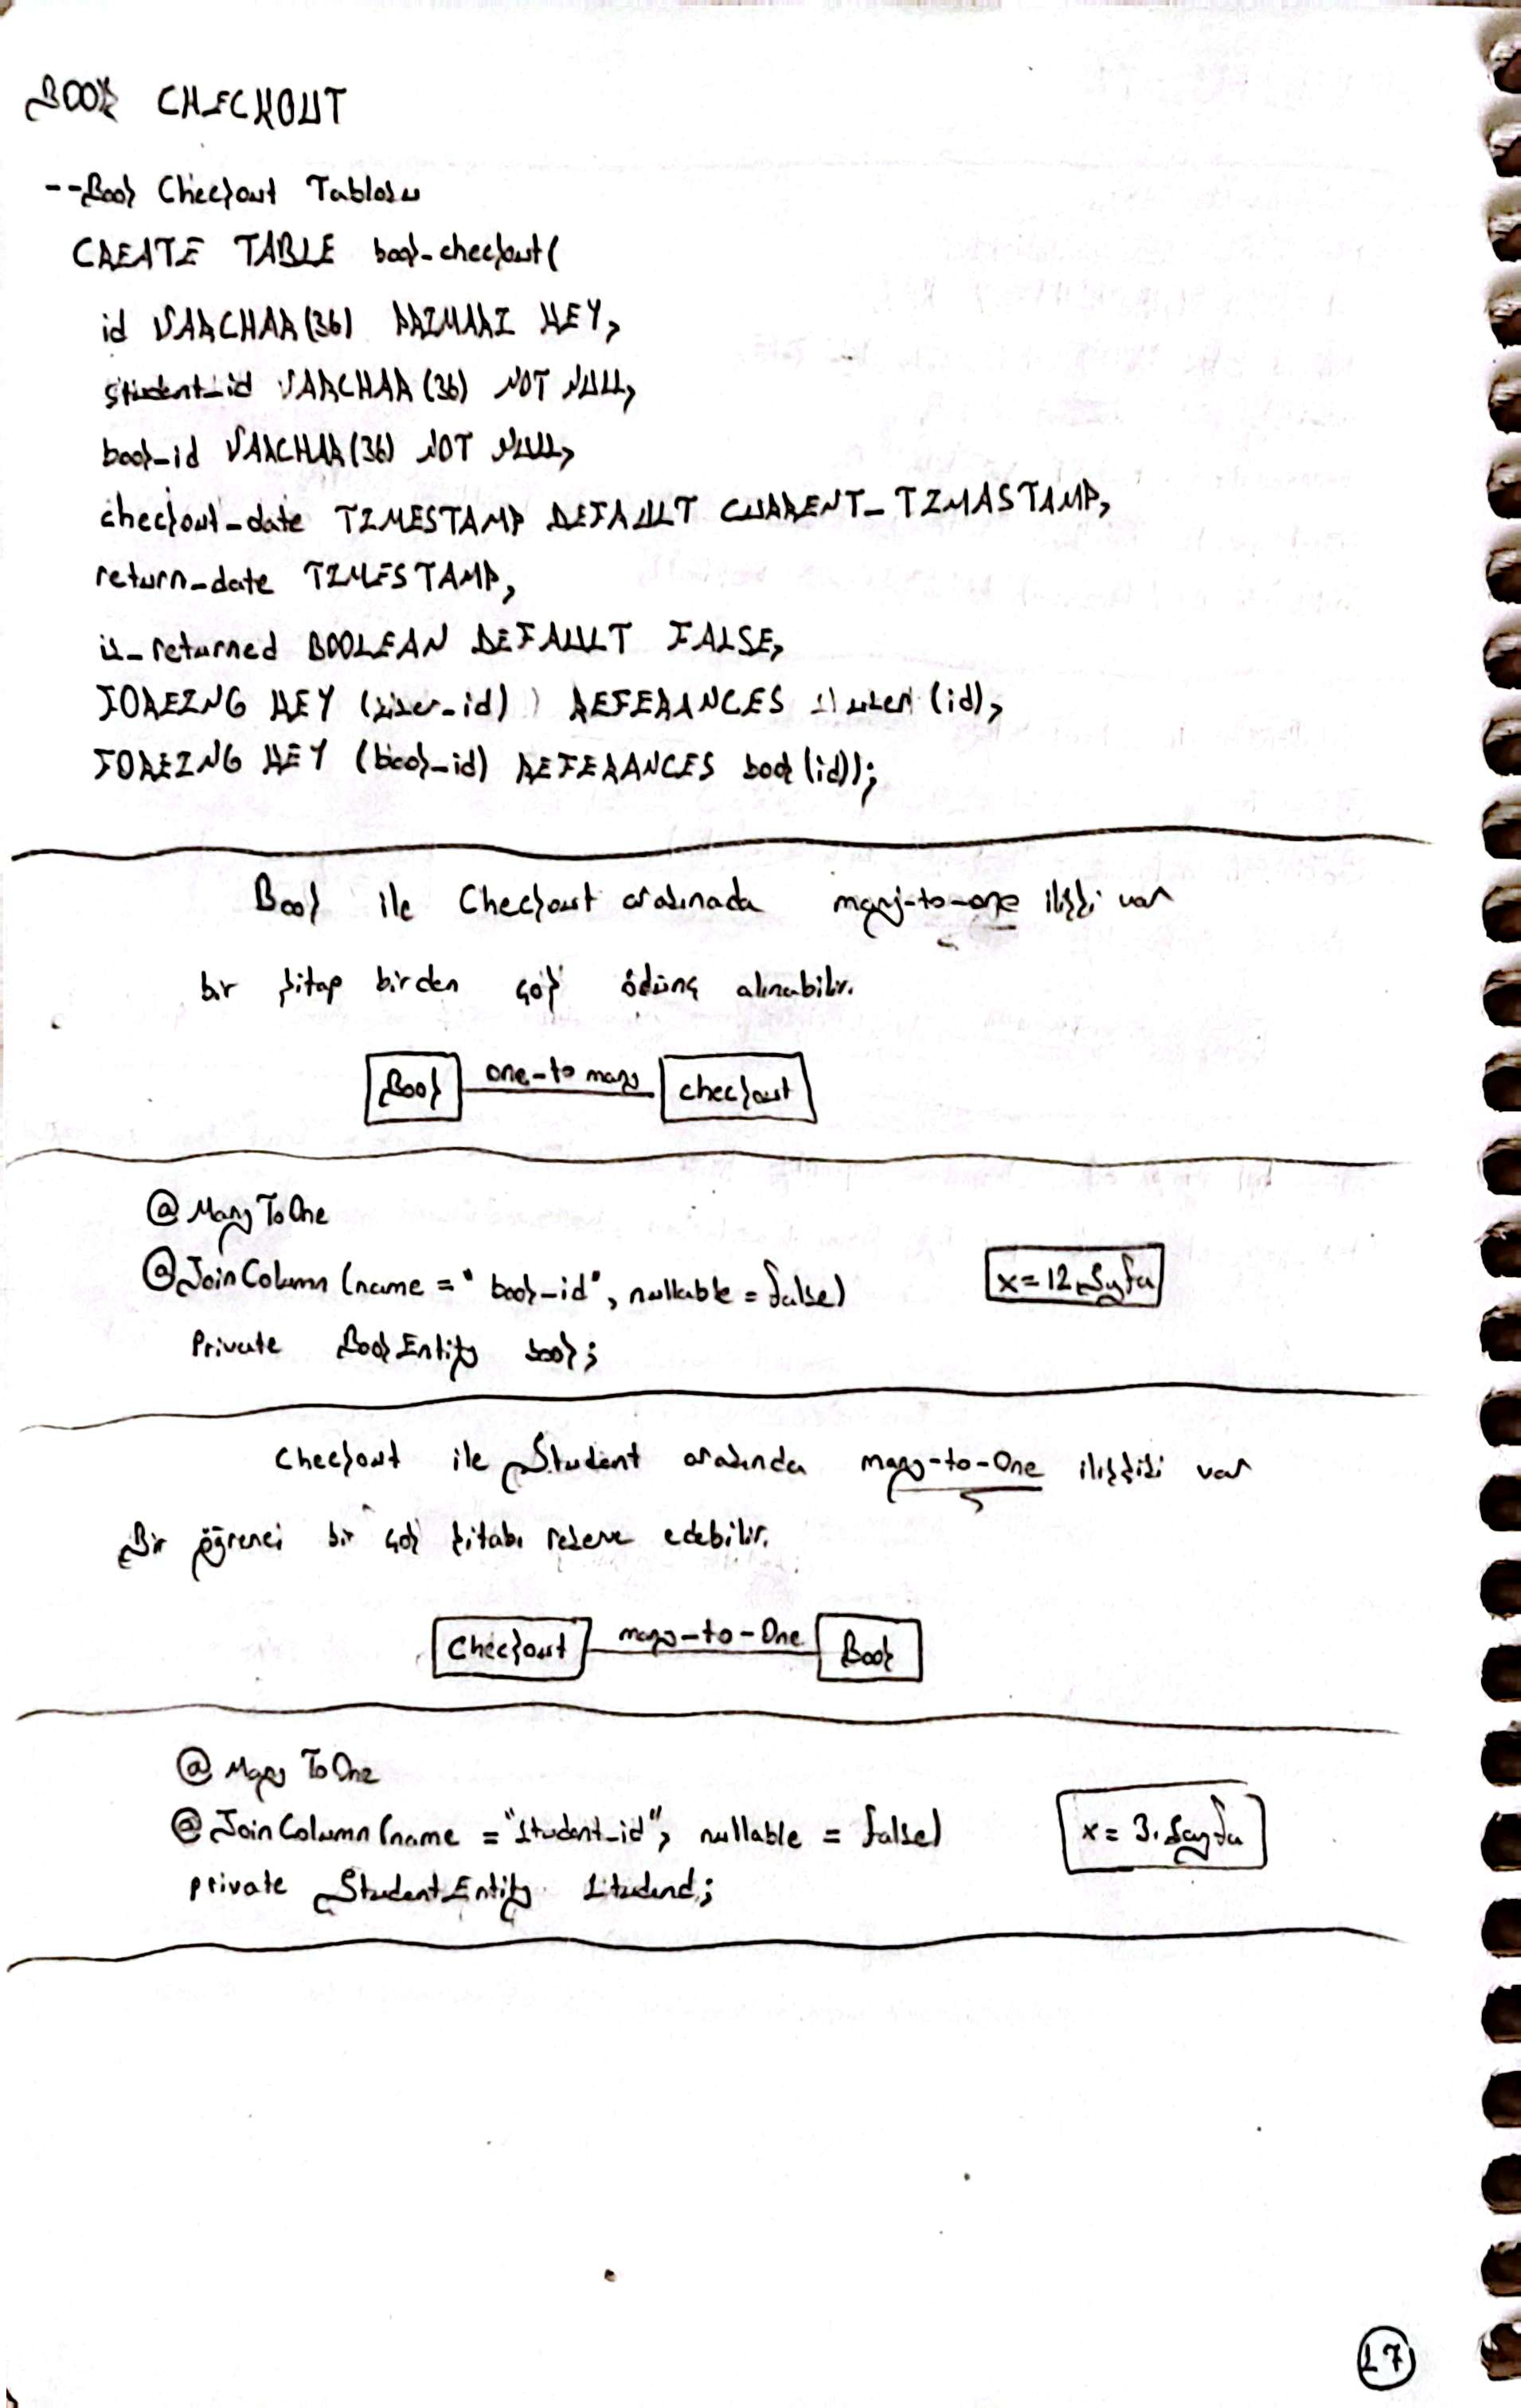 BOOK CHECKOUT
--Book Checkout Tablosu
CREATE TABLE book-checkout(
id VARCHAR(36) PRIMARI KEY,
student_id VARCHAR(36) NOT NULL,
book_id VARCHAR(36) NOT NULL,
checkout_date TIMESTAMP DEFAULT CURRENT_TIMASTAMP,
return_date TIMESTAMP,
is_returned BOOLEAN DEFAULT FALSE,
FOREING KEY (user_id) REFERANCES user (id),
FOREING KEY (book_id) REFERANCES book (id));
Book ile Checkout arasınada many-to-one ilişki var
bir kitap birden çok ödünç alınabilir.
Book one-to many checkout
@ManyToOne
@JoinColumn (name = "book_id", nullable = false) x=12.Syfa
Private BookEntity book;
Checkout ile Student arasında many-to-One ilişkisi var
Bir öğrenci bir çok kitabı rezerve edebilir.
Checkout many-to-One Book
@ManyToOne
@JoinColumn (name = "student_id", nullable = false) x= 3.Sayfa
private StudentEntity studend;
17